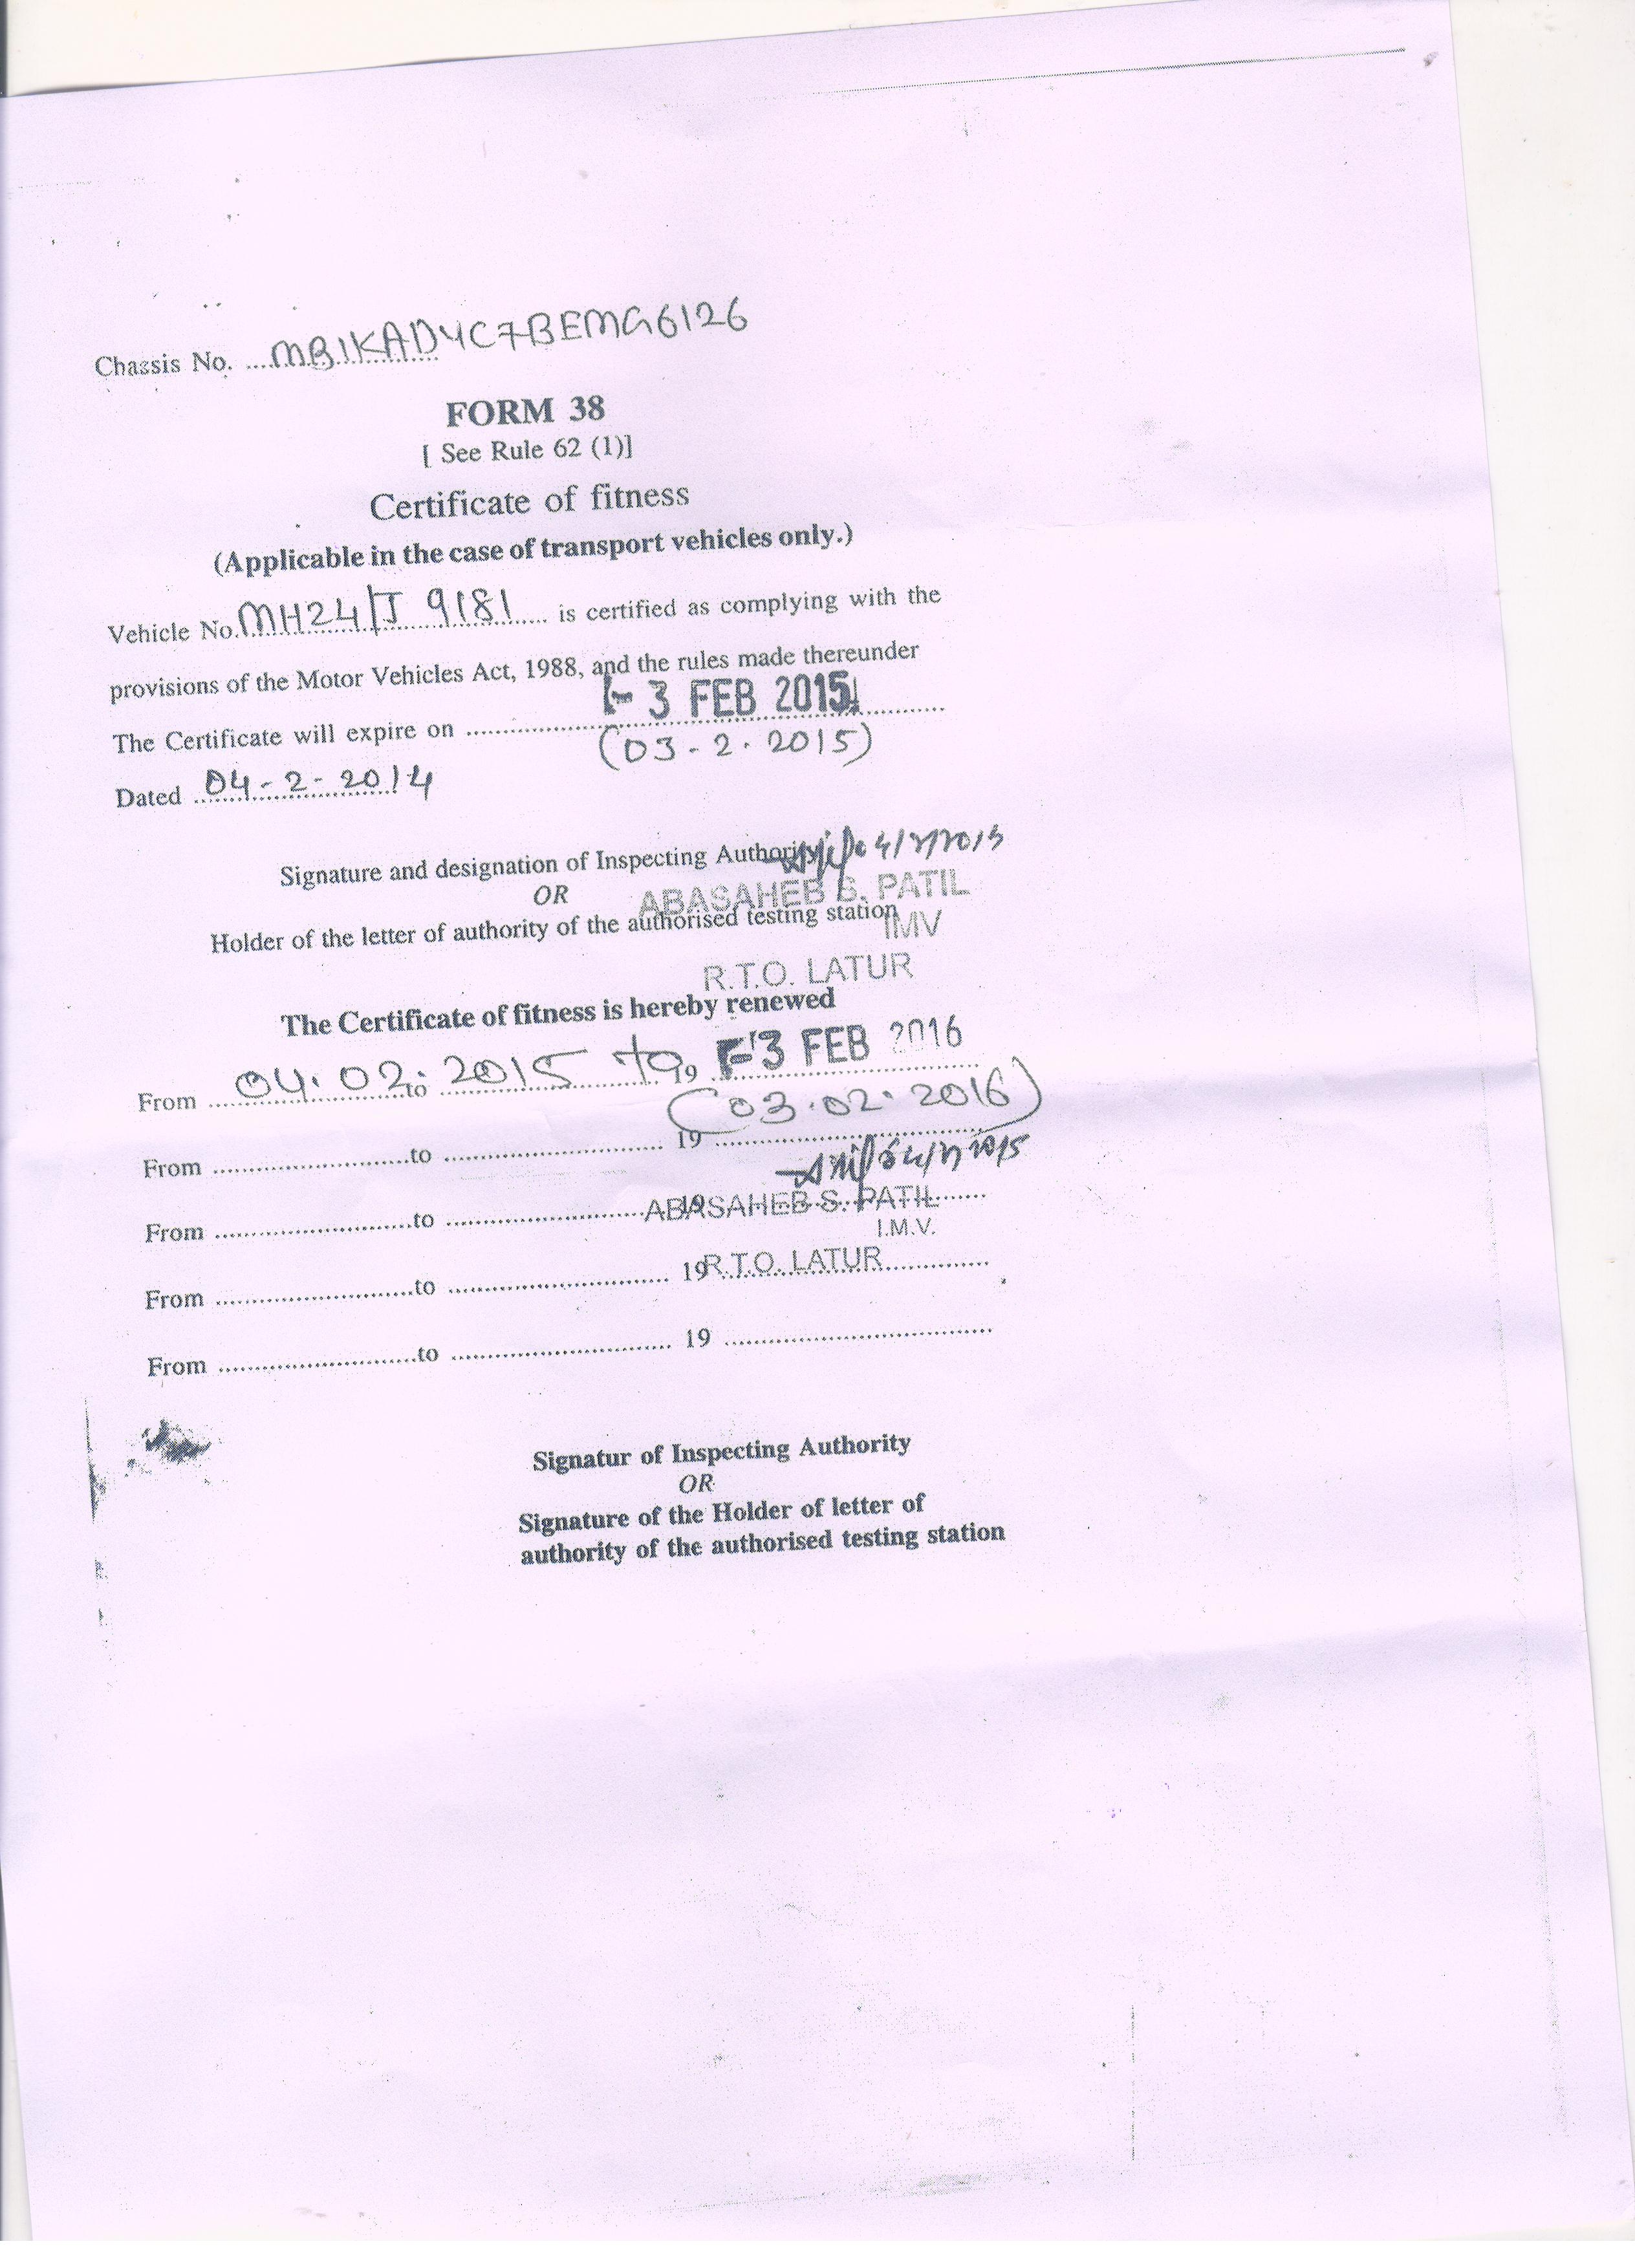 Chassis No. MB1KAD4C7BEMG6126
FORM 38
[ See Rule 62 (1)]
Certificate of fitness
(Applicable in the case of transport vehicles only.)
Vehicle No. MH24/J 9181 is certified as complying with the
provisions of the Motor Vehicles Act, 1988, and the rules made thereunder
- 3 FEB 2015
The Certificate will expire on
(03-2.2015)
Dated 04-2-2014
Signature and designation of Inspecting Authority
OR
ABASAHEB S. PATIL
Holder of the letter of authority of the authorised testing station
IMV
R.T.O. LATUR
The Certificate of fitness is hereby renewed
From 04.02.2015 to to 19 -3 FEB 2016
(03.02.2016)
From to 19
From to 19
ABASAHEB S. PATIL
I.M.V.
From to 19
R.T.O. LATUR
From to 19
Signatur of Inspecting Authority
OR
Signature of the Holder of letter of
authority of the authorised testing station